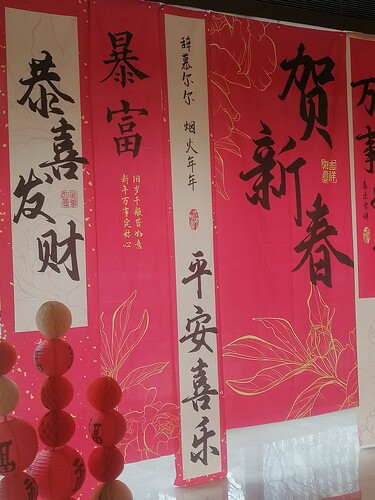 恭喜发财
暴富
旧岁千般皆如意
新年万事定称心
辞暮尔尔
烟火年年
平安喜乐
贺新春
万事